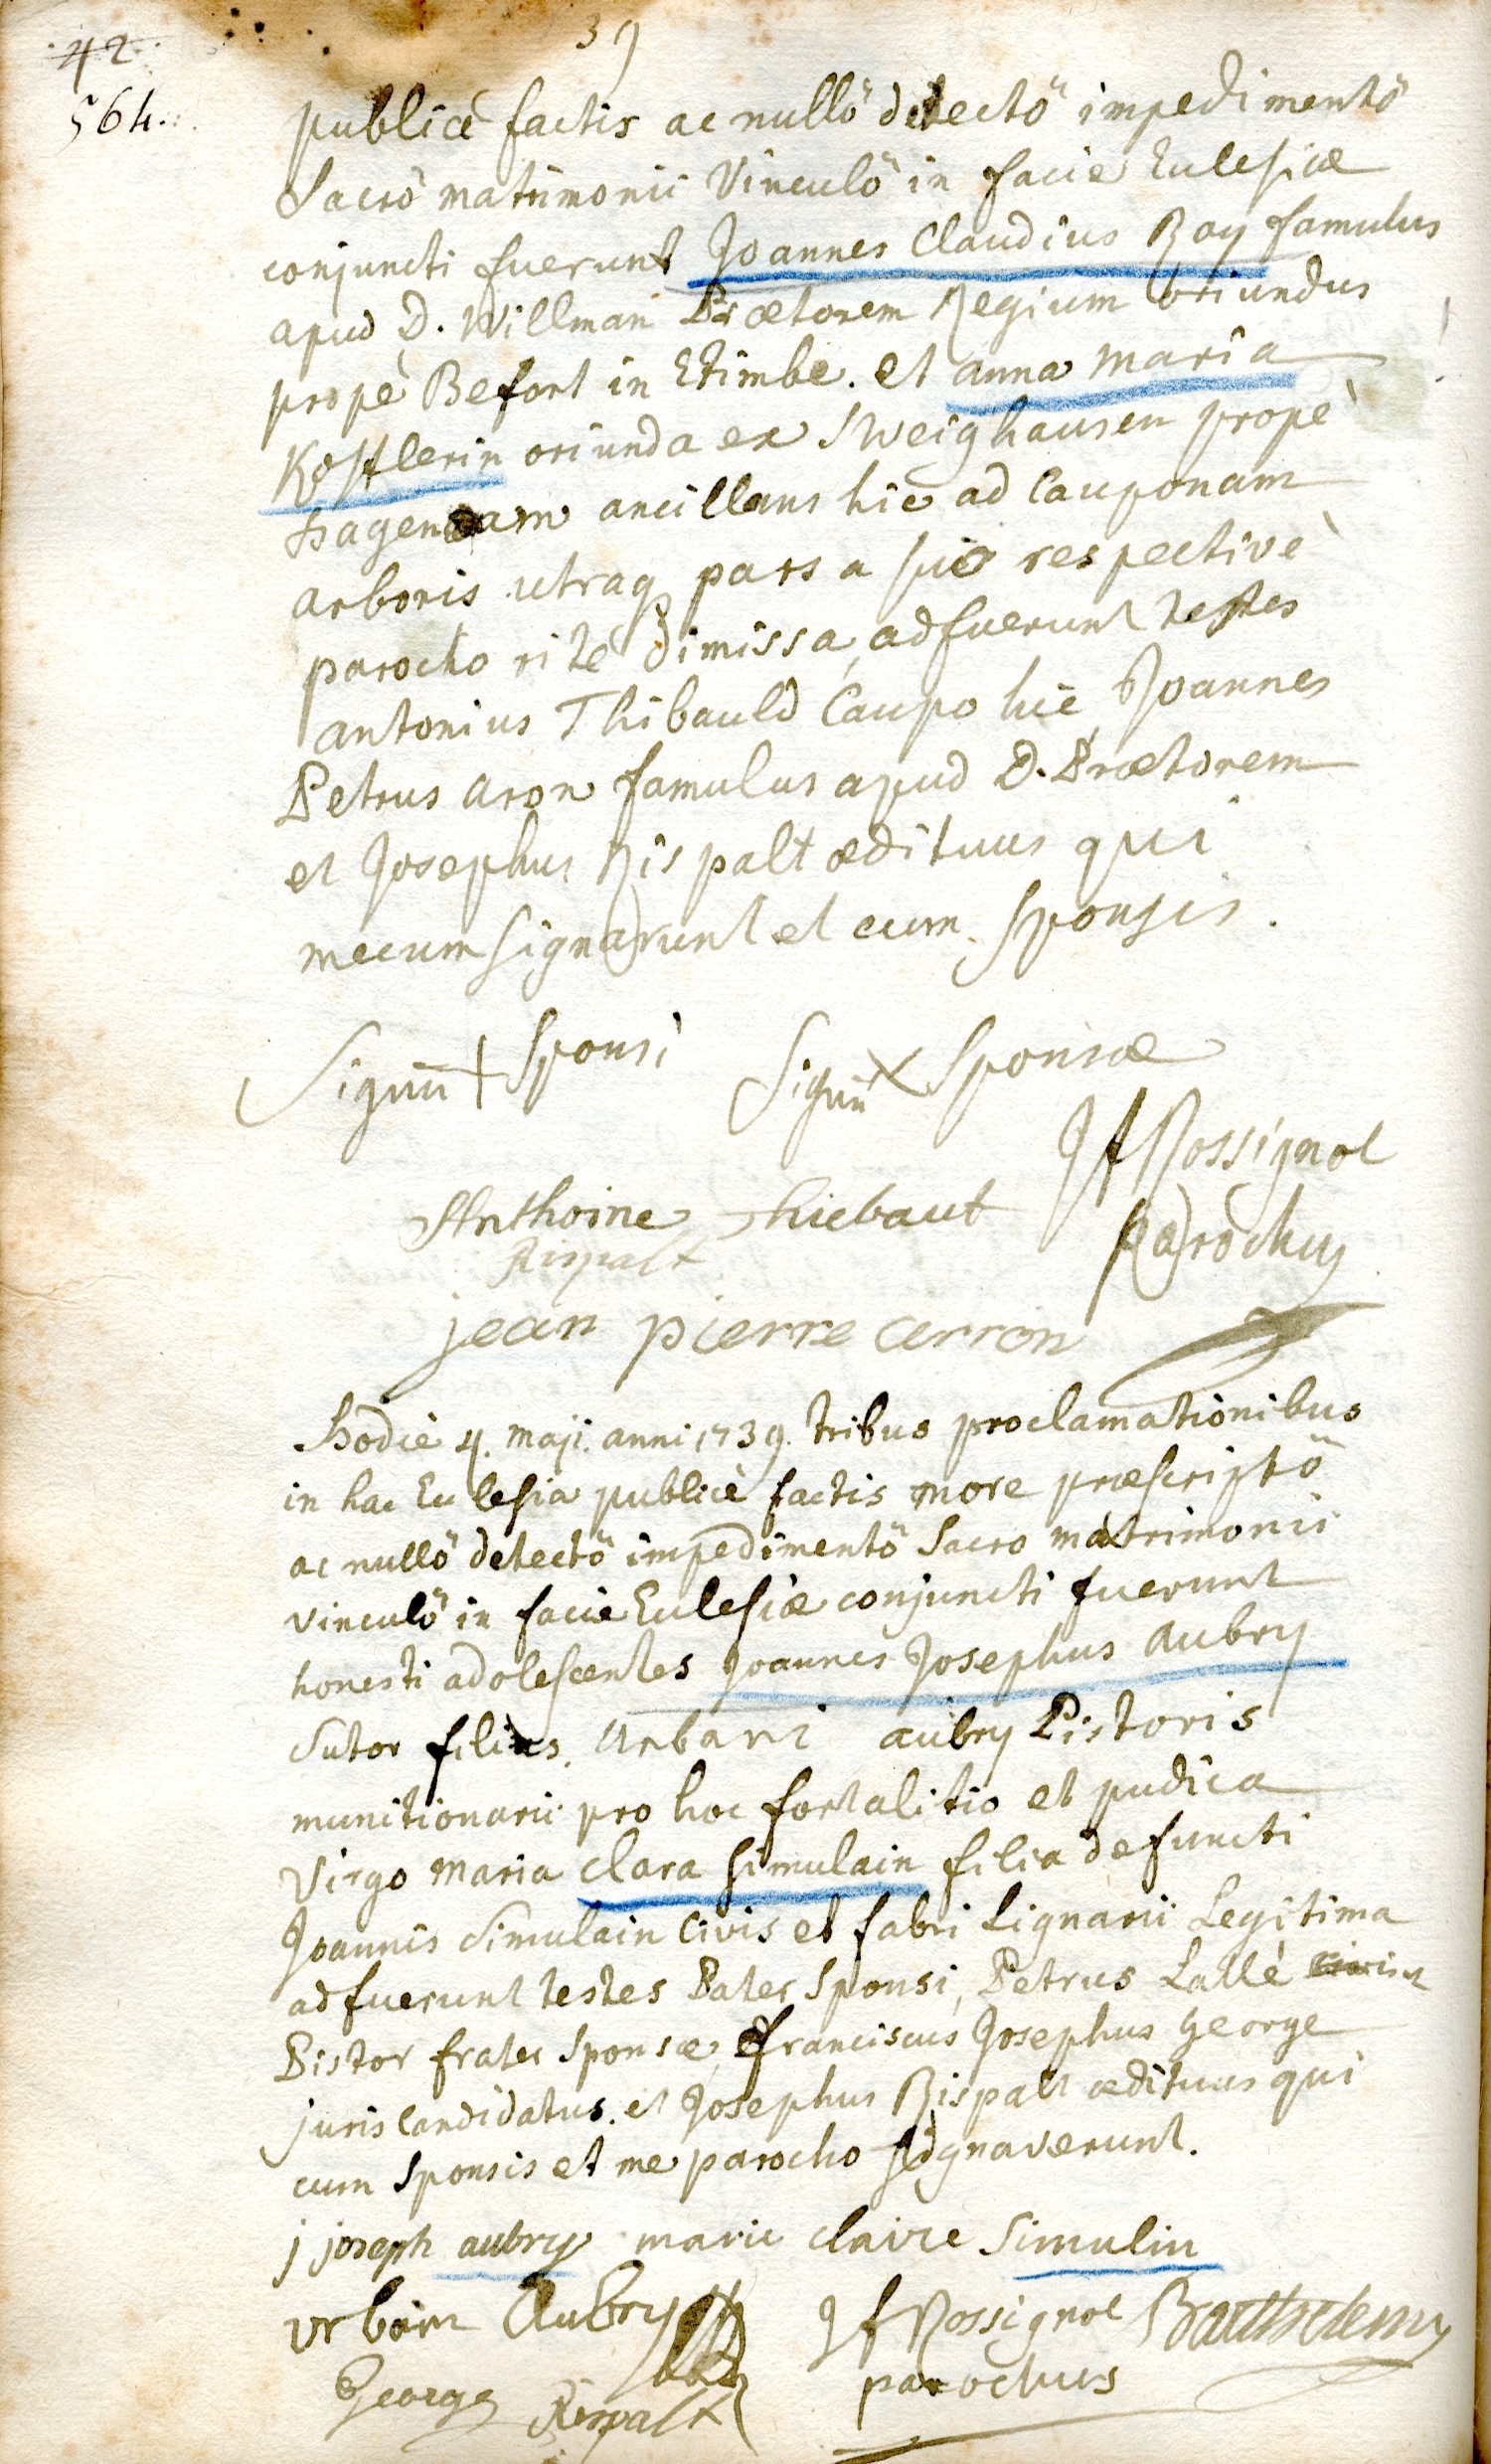 42
39
564.
publicè factis ac nullô detectô impedimentô
Sacrô matrimonii Vinculô in facie Ecclesiæ
conjuncti fuerunt Joannes Claudius Roy famulus
apud D. Willman Prætorem Regium oriundus
propè Befort in Etimbe. et anna maria
Kostlerin oriunda ex Sweighausen propè
hagenoam ancillans hic ad Cauponam
arboris utraq pars a suo respectivè
parocho ritè dimissa, adfuerunt testes
antonius Thibauld Caupo hic Joannes
Petrus aron famulus apud D. Prætorem
et Josephus Rispalt ædituus qui
mecum signarunt et cum sponsis.
Signū + Sponsi Signū x Sponsæ
J f Rossignol
Anthoine thiebaut
parochus
Rispalt
jean pierre arron
Hodiè 4. maji. anni 1739. tribus proclamationibus
in hac Ecclesia publicè factis more præscriptô
ac nullô detectô impedimentô Sacro matrimonii
vinculô in facie Ecclesiæ conjuncti fuerunt
honesti adolescentes Joannes Josephus aubry
Sutor filius Urbani aubry Pistoris
munitionarii pro hoc fortalitio et pudica
Virgo maria clara simulain filia defuncti
Joannis Simulain Civis et fabri Lignarii Legitima
adfuerunt testes Pater Sponsi, Petrus Lallè
Pistor frater Sponsæ, franciscus Josephus george
juris Candidatus. et Josephus Rispalt ædituus qui
cum Sponsis et me parocho signaverunt.
j joseph aubry marie claire Simulin
urbain Aubry J f Rossignol Barthelemy
George Rispalt parochus